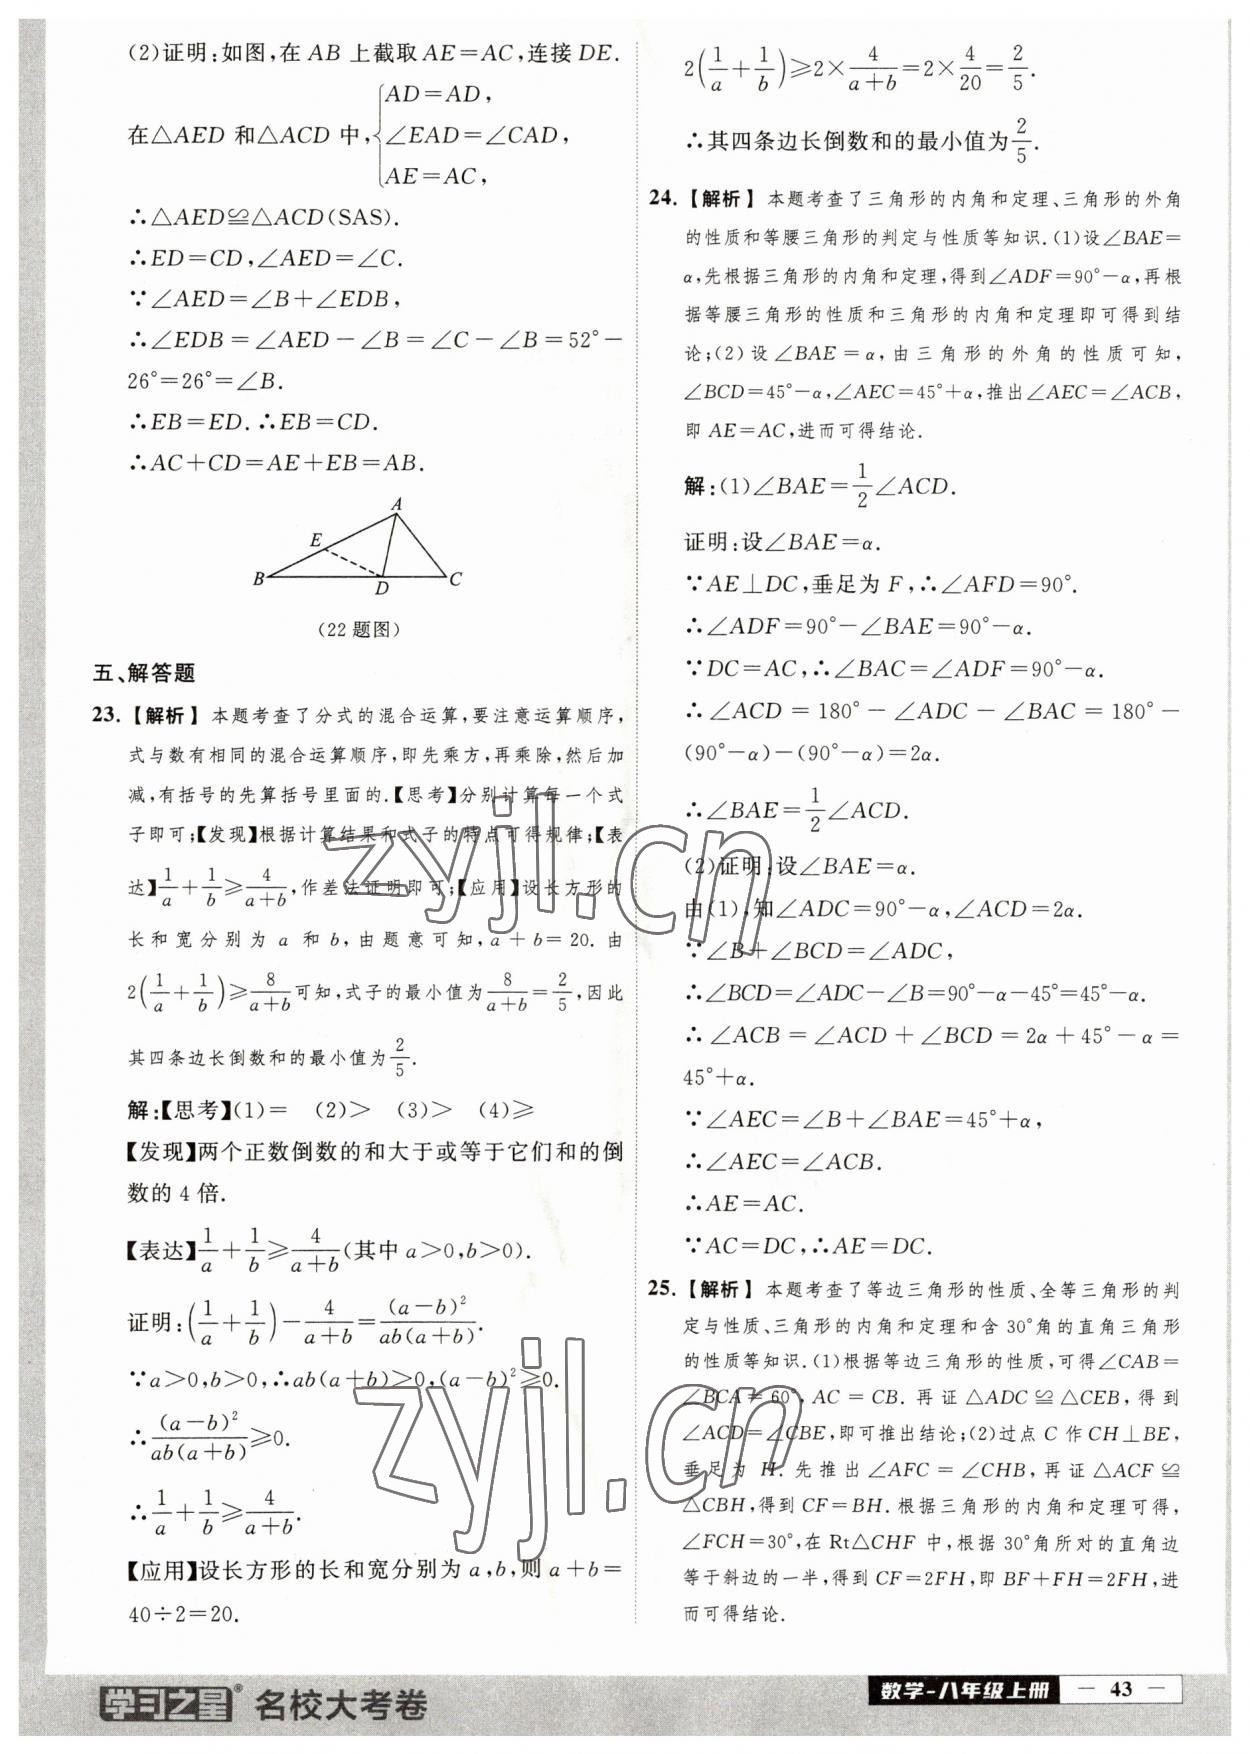 (2)证明:如图,在 AB 上截取 AE=AC,连接 DE.
在△AED 和△ACD 中,{AD=AD,
∠EAD=∠CAD,
AE=AC,
∴△AED≌△ACD(SAS).
∴ED=CD,∠AED=∠C.
∵∠AED=∠B+∠EDB,
∴∠EDB=∠AED-∠B=∠C-∠B=52°-
26°=26°=∠B.
∴EB=ED.∴EB=CD.
∴AC+CD=AE+EB=AB.
A
E
B
D
C
(22题图)
五、解答题
23.【解析】本题考查了分式的混合运算,要注意运算顺序,
式与数有相同的混合运算顺序,即先乘方,再乘除,然后加
减,有括号的先算括号里面的.【思考】分别计算每一个式
子即可;【发现】根据计算结果和式子的特点可得规律;【表
达】1/a+1/b≥4/(a+b),作差法证明即可;【应用】设长方形的
长和宽分别为 a 和 b,由题意可知,a+b=20.由
2(1/a+1/b)≥8/(a+b)可知,式子的最小值为8/(a+b)=2/5,因此
其四条边长倒数和的最小值为2/5.
解:【思考】(1)= (2)> (3)> (4)≥
【发现】两个正数倒数的和大于或等于它们和的倒
数的 4 倍.
【表达】1/a+1/b≥4/(a+b)(其中 a>0,b>0).
证明:(1/a+1/b)-4/(a+b)=(a-b)²/ab(a+b).
∵a>0,b>0,∴ab(a+b)>0,(a-b)²≥0.
∴(a-b)²/ab(a+b)≥0.
∴1/a+1/b≥4/(a+b).
【应用】设长方形的长和宽分别为 a,b,则 a+b=
40÷2=20.
2(1/a+1/b)≥2×4/(a+b)=2×4/20=2/5.
∴其四条边长倒数和的最小值为2/5.
24.【解析】本题考查了三角形的内角和定理、三角形的外角
的性质和等腰三角形的判定与性质等知识.(1)设∠BAE=
α,先根据三角形的内角和定理,得到∠ADF=90°-α,再根
据等腰三角形的性质和三角形的内角和定理即可得到结
论;(2)设∠BAE=α,由三角形的外角的性质可知,
∠BCD=45°-α,∠AEC=45°+α,推出∠AEC=∠ACB,
即 AE=AC,进而可得结论.
解:(1)∠BAE=1/2∠ACD.
证明:设∠BAE=α.
∵AE⊥DC,垂足为 F,∴∠AFD=90°.
∴∠ADF=90°-∠BAE=90°-α.
∵DC=AC,∴∠BAC=∠ADF=90°-α.
∴∠ACD=180°-∠ADC-∠BAC=180°-
(90°-α)-(90°-α)=2α.
∴∠BAE=1/2∠ACD.
(2)证明:设∠BAE=α.
由(1),知∠ADC=90°-α,∠ACD=2α.
∵∠B+∠BCD=∠ADC,
∴∠BCD=∠ADC-∠B=90°-α-45°=45°-α.
∴∠ACB=∠ACD+∠BCD=2α+45°-α=
45°+α.
∵∠AEC=∠B+∠BAE=45°+α,
∴∠AEC=∠ACB.
∴AE=AC.
∵AC=DC,∴AE=DC.
25.【解析】本题考查了等边三角形的性质、全等三角形的判
定与性质、三角形的内角和定理和含 30°角的直角三角形
的性质等知识.(1)根据等边三角形的性质,可得∠CAB=
∠BCA=60°,AC=CB.再证△ADC≌△CEB,得到
∠ACD=∠CBE,即可推出结论;(2)过点 C 作 CH⊥BE,
垂足为 H.先推出∠AFC=∠CHB,再证△ACF≌
△CBH,得到 CF=BH.根据三角形的内角和定理可得,
∠FCH=30°,在 Rt△CHF 中,根据 30°角所对的直角边
等于斜边的一半,得到 CF=2FH,即 BF+FH=2FH,进
而可得结论.
zyjl.cn
zyjl.cn
学习之星® 名校大考卷
数学-八年级上册 — 43 —